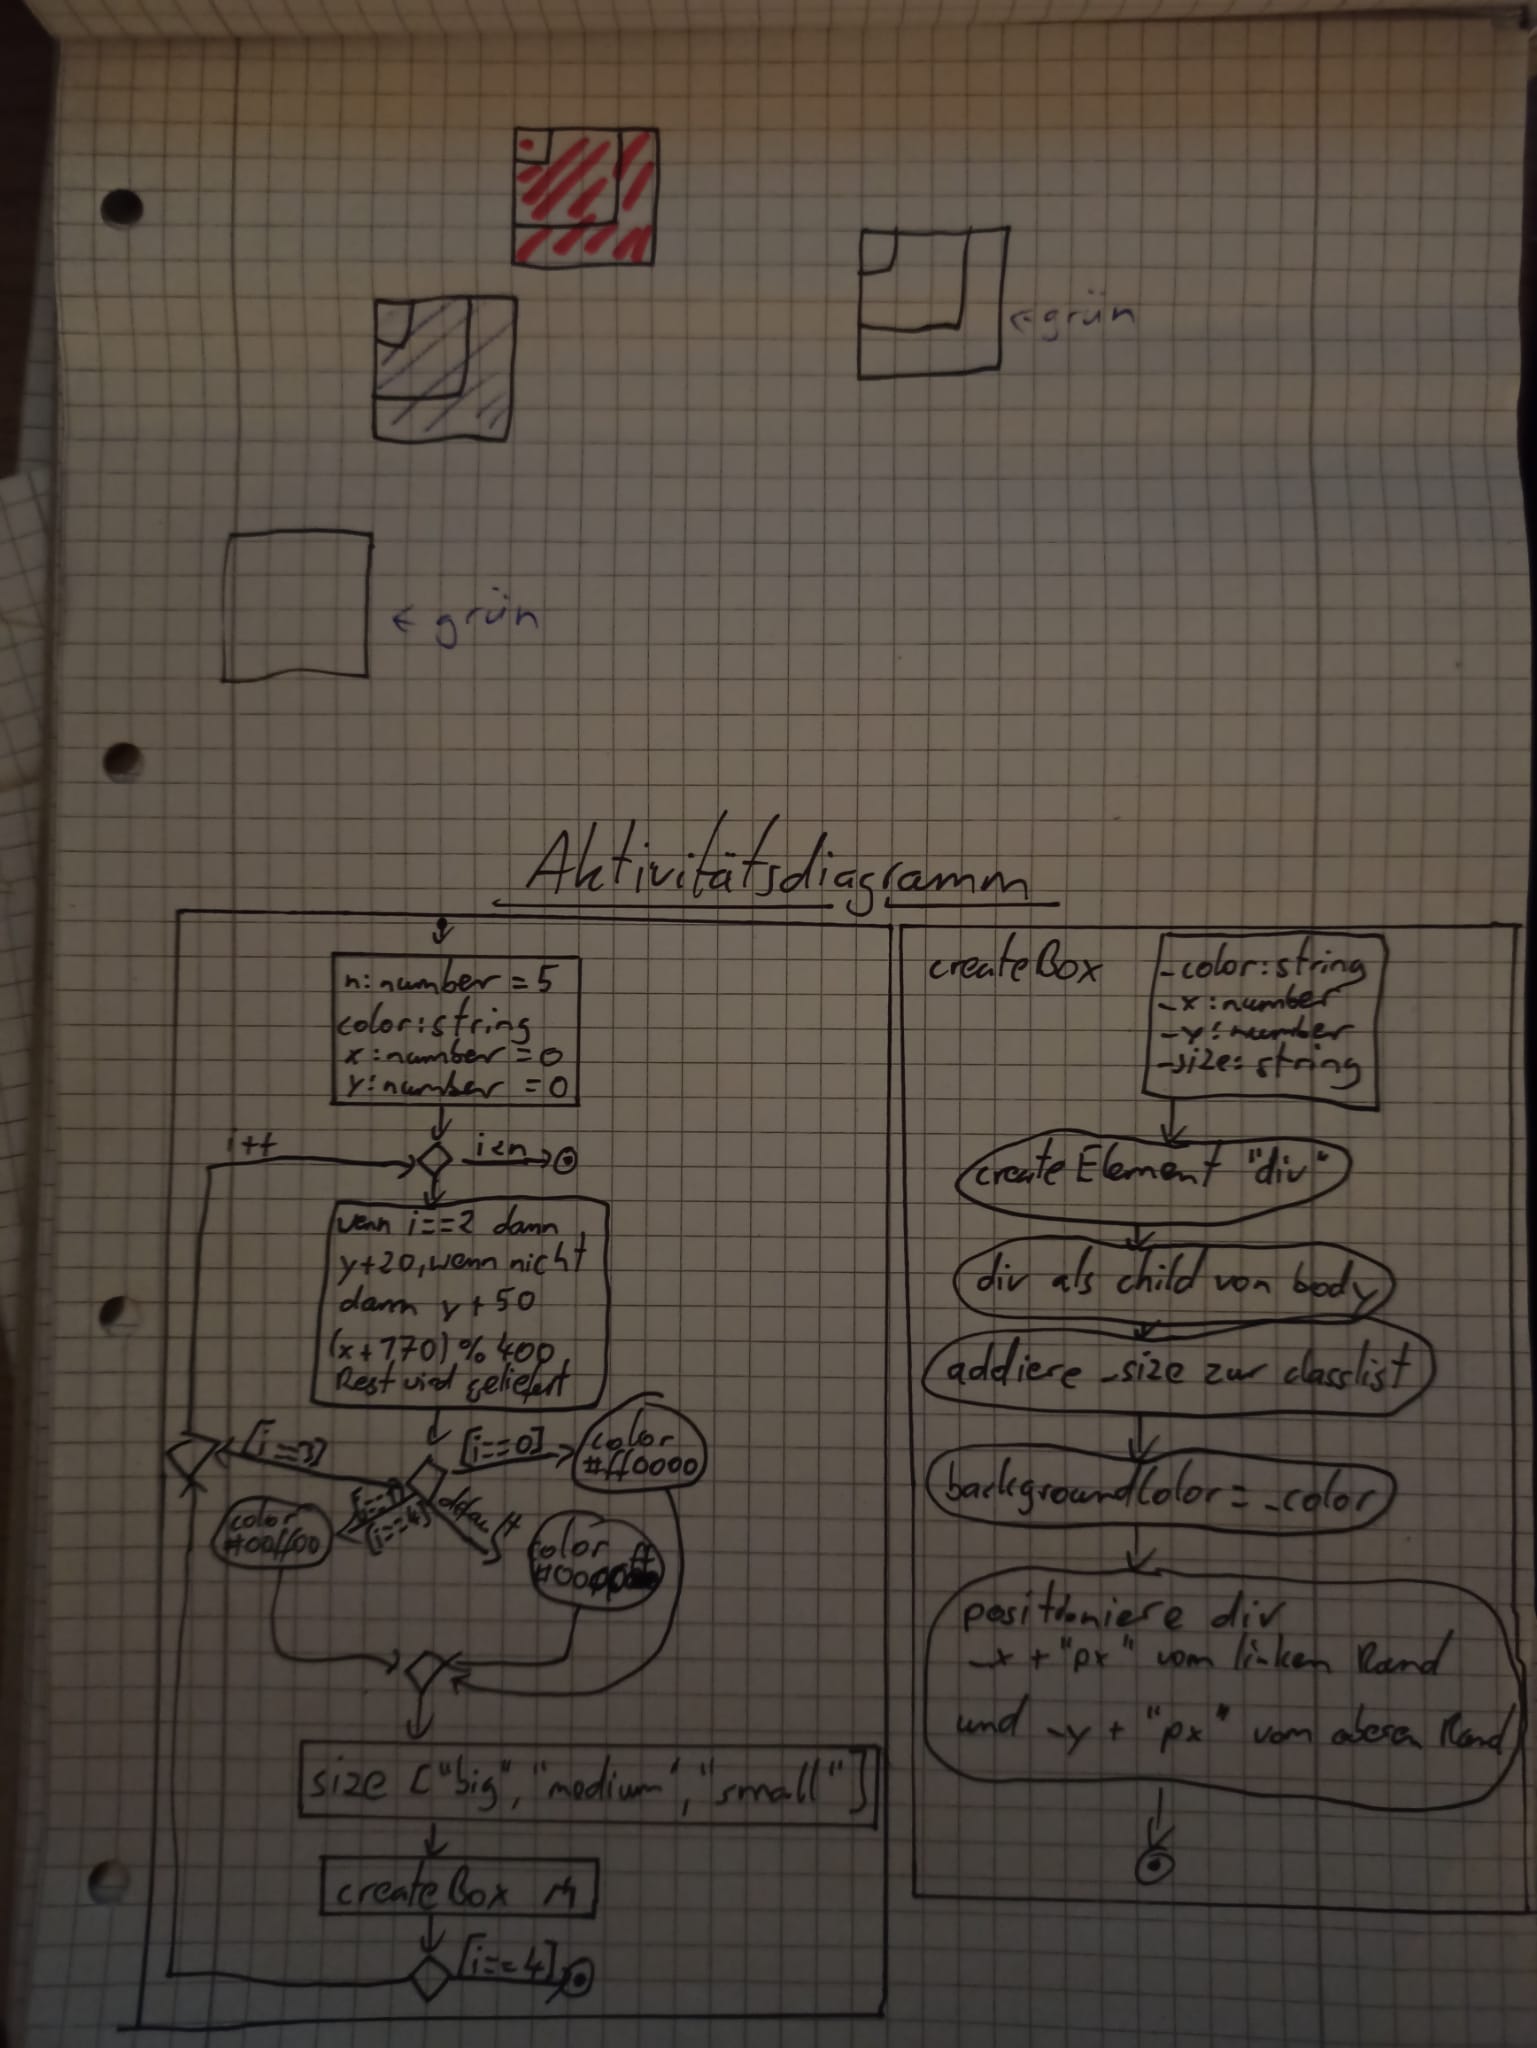 ← grün
← grün
Aktivitätsdiagramm
n: number = 5
color: string
x: number = 0
y: number = 0
i++
i<n
wenn i==2 dann
y+20, wenn nicht
dann y+50
(x+170) % 400
Rest wird geliefert
[i==3]
[i==0]
color
#ff0000
[i==1]
[i==4]
default
color
#00ff00
color
#0000ff
size ["big", "medium", "small"]
createBox
[i==4]
createBox
_color: string
_x: number
_y: number
_size: string
createElement "div"
div als child von body
addiere _size zur classlist
backgroundColor = _color
positioniere div
_x + "px" vom linken Rand
und _y + "px" vom oberen Rand